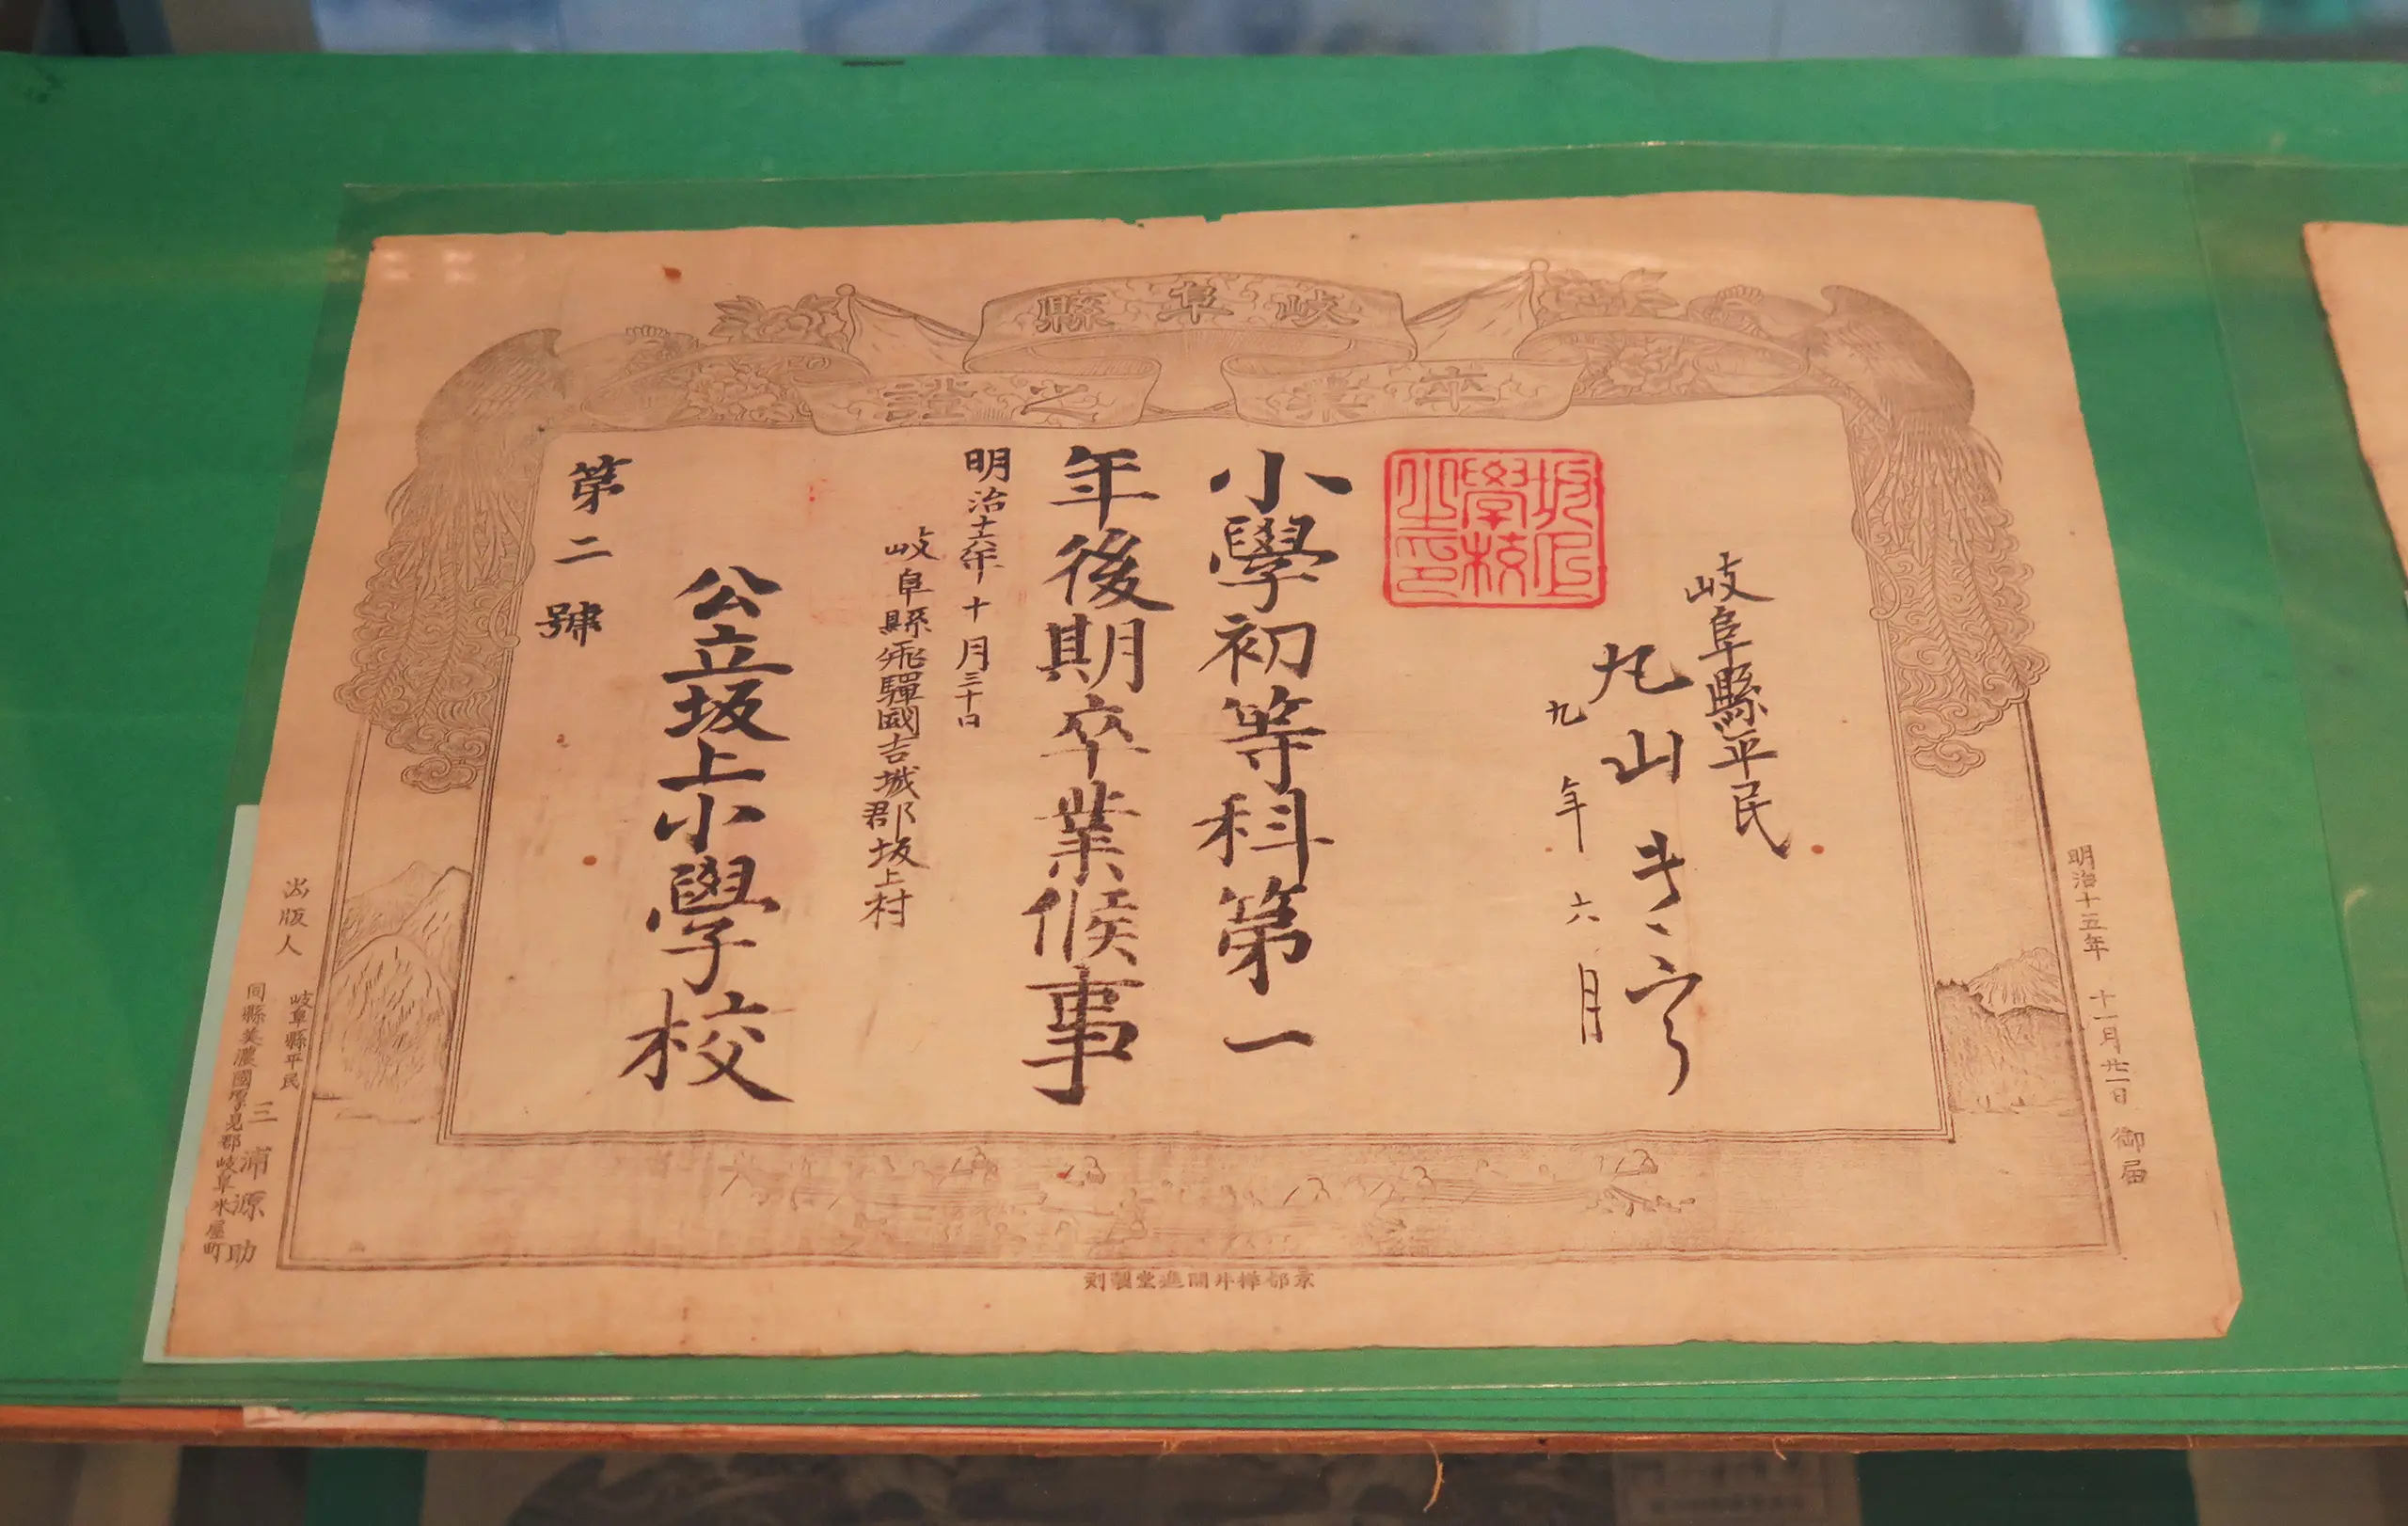 岐阜縣
卒業之證
岐阜縣平民
丸山
九年六月
坂上
學校
之印
小學初等科第一
年後期卒業候事
明治十六年十月三十日
岐阜縣飛驒國吉城郡坂上村
公立坂上小學校
第二號
明治十五年十一月廿一日御届
出版人
岐阜縣平民
三浦源助
同縣美濃國厚見郡岐阜米屋町